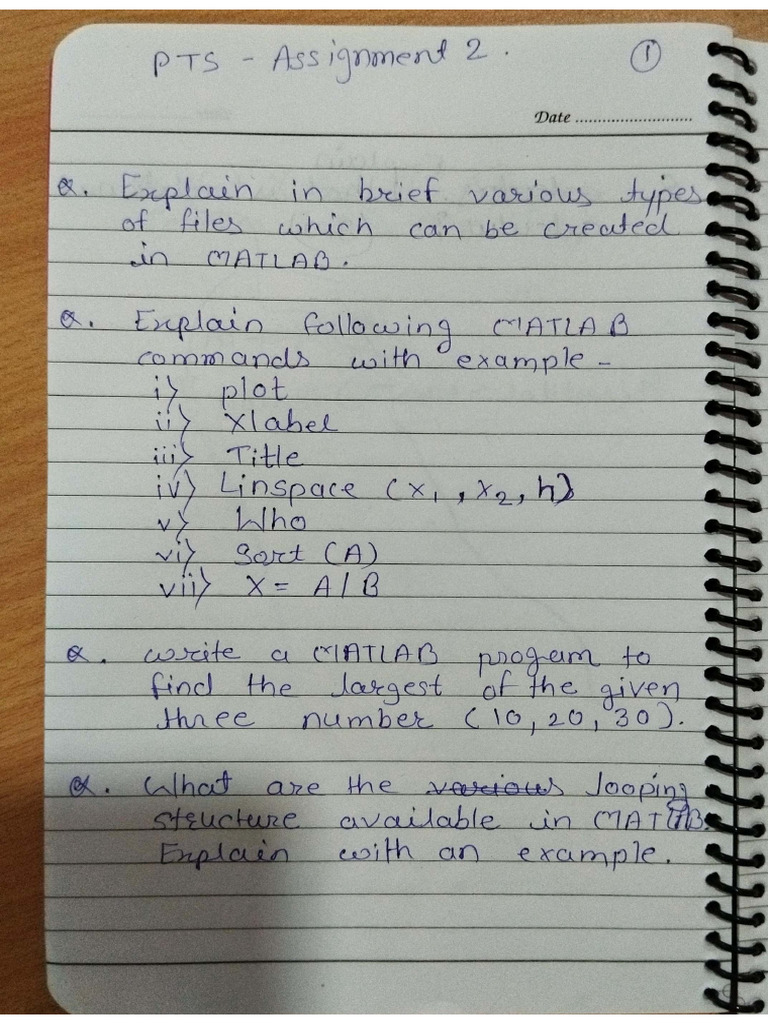 PTS - Assignment 2. 1
Date ..........................
Q. Explain in brief various types
of files which can be created
in MATLAB.
Q. Explain following MATLAB
commands with example -
i) plot
ii) Xlabel
iii) Title
iv) Linspace (x1, x2, h)
v) Who
vi) Sort (A)
vii) X = A / B
Q. Write a MATLAB progam to
find the largest of the given
three number (10, 20, 30).
Q. What are the various looping
structure available in MATLAB.
Explain with an example.